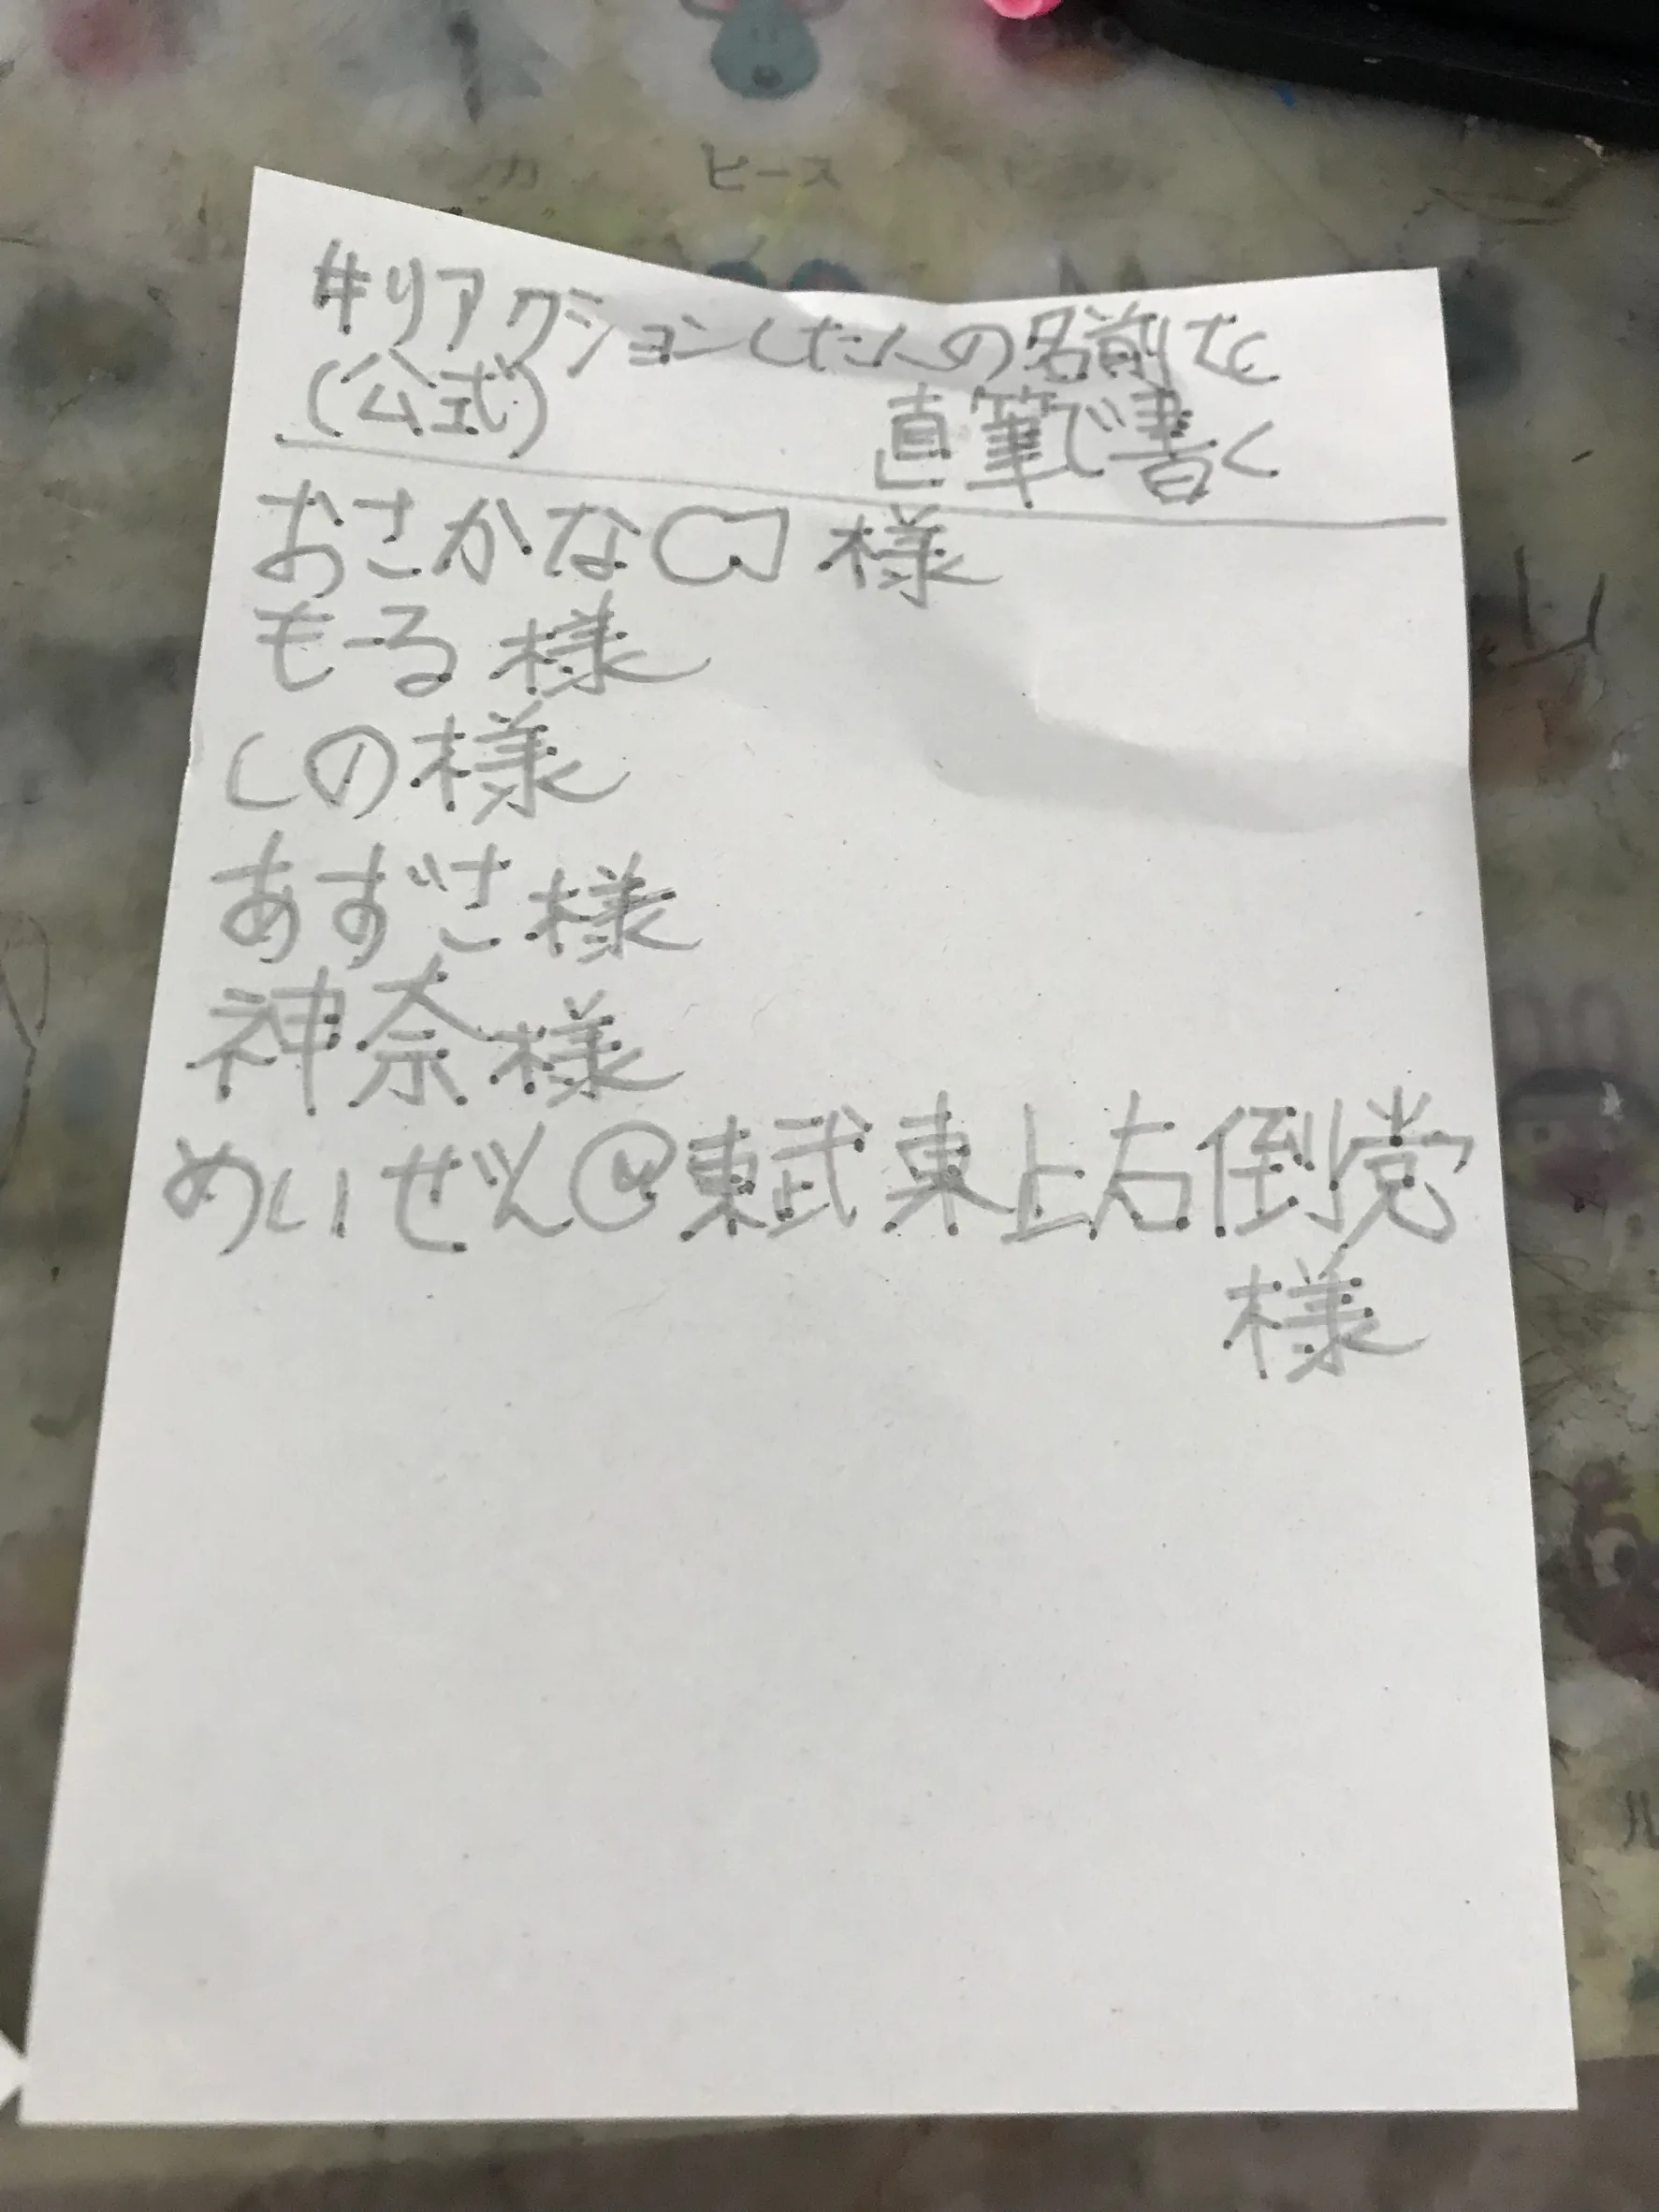 ピース
#リアクションした人の名前を
(公式)
直筆で書く
おさかな 様
もーる 様
しの様
あずさ様
神奈様
めいぜん@東武東上右倒党
様
ル